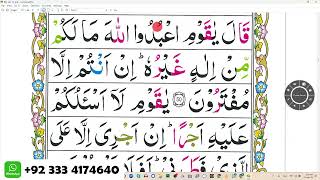 قَالَ يٰقَوْمِ اعْبُدُوا اللّٰهَ مَا لَكُمْ
مِّنْ اِلٰهٍ غَيْرُهٗ ؕ اِنْ اَنْتُمْ اِلَّا
مُفْتَرُوْنَ ۝ يٰقَوْمِ لَاۤ اَسْئَلُكُمْ
عَلَيْهِ اَجْرًا ؕ اِنْ اَجْرِىَ اِلَّا عَلَى
الَّذِىْ فَطَرَنِىْ ؕ اَفَلَا
+92 333 4174640